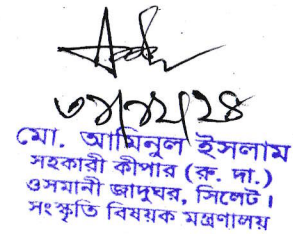 ৩১/১২/২৪
মো. আমিনুল ইসলাম
সহকারী কীপার (রু. দা.)
ওসমানী জাদুঘর, সিলেট।
সংস্কৃতি বিষয়ক মন্ত্রণালয়